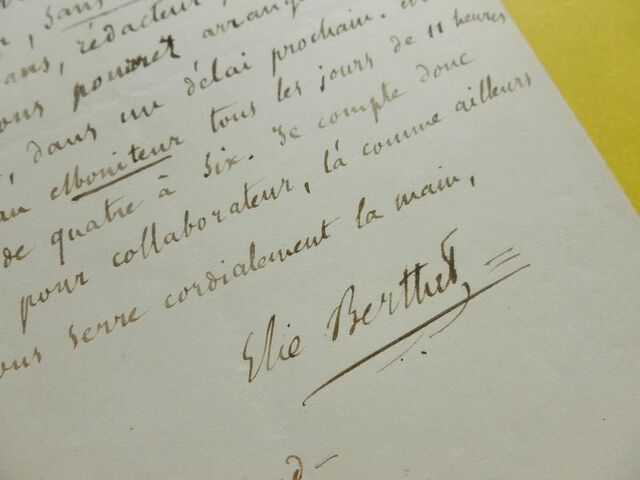 , sans
ans, rédacteur,
ous pouvez arrang
, dans un délai prochain.
au Moniteur tous les jours de 11 heures
de quatre à six. Je compte donc
pour collaborateur, là comme ailleurs
ous serre cordialement la main,
Elie Berthet